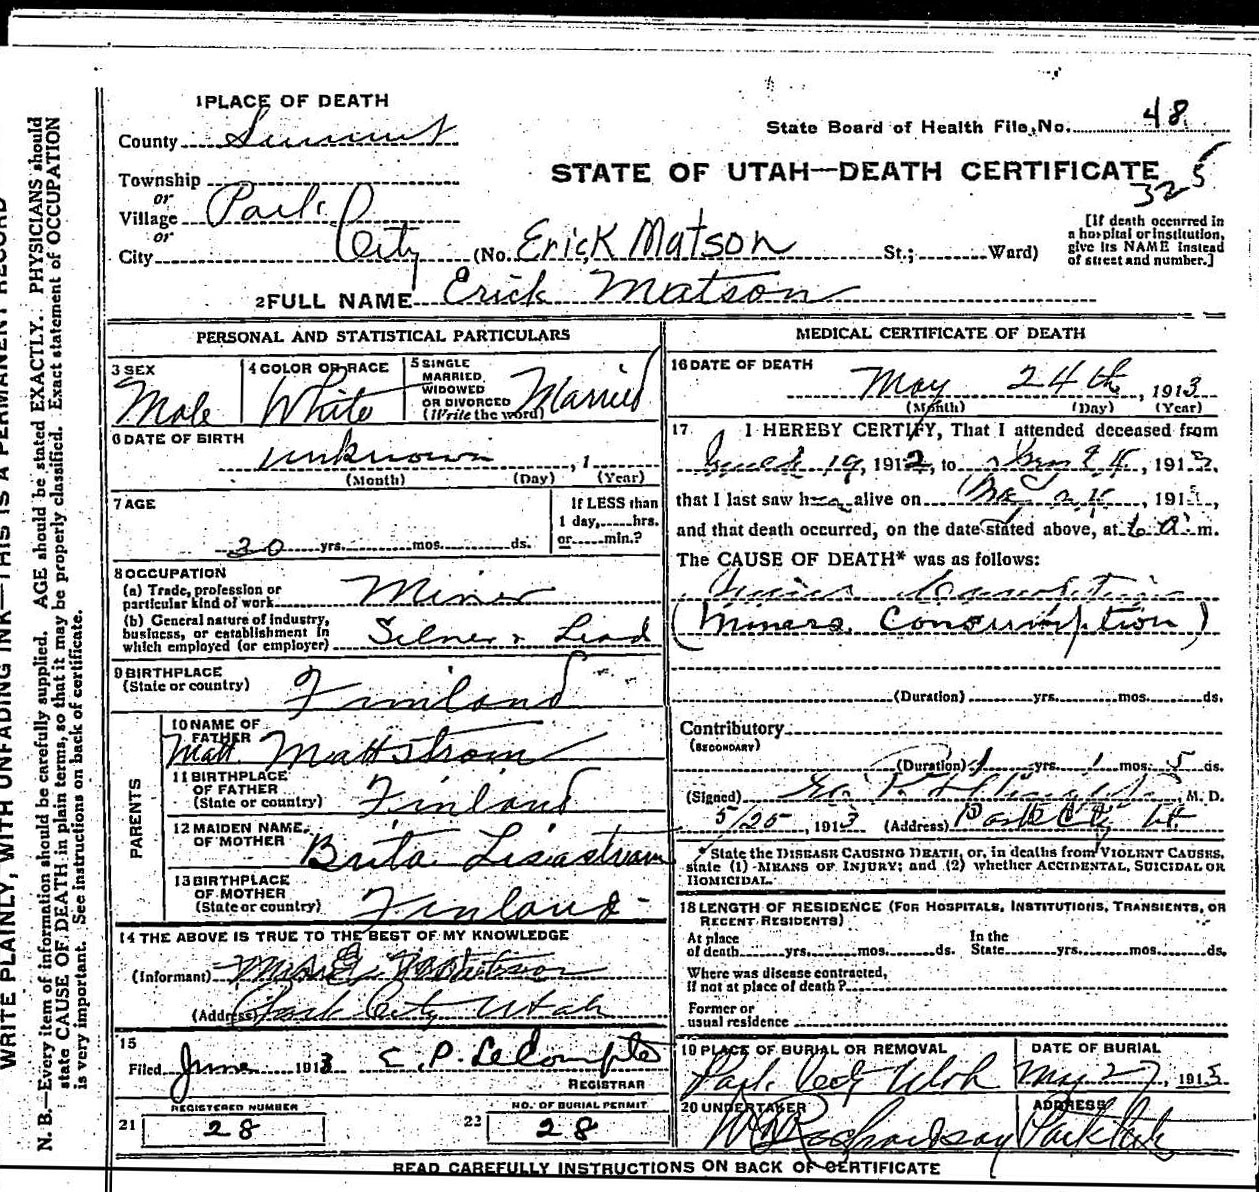 1 PLACE OF DEATH
County Summit
State Board of Health File No. 48
STATE OF UTAH—DEATH CERTIFICATE
325
Township
or
Village Park
or
City City (No. Erick Matson St.; Ward)
[If death occurred in
a hospital or institution,
give its NAME instead
of street and number.]
2 FULL NAME Erick Matson
PERSONAL AND STATISTICAL PARTICULARS
3 SEX
Male
4 COLOR OR RACE
White
5 SINGLE
MARRIED,
WIDOWED
OR DIVORCED
(Write the word)
Married
6 DATE OF BIRTH
unknown, 1
(Month) (Day) (Year)
7 AGE
30 yrs. mos. ds.
If LESS than
1 day, hrs.
or min.?
8 OCCUPATION
(a) Trade, profession or
particular kind of work Miner
(b) General nature of industry,
business, or establishment in
which employed (or employer) Silver & Lead
9 BIRTHPLACE
(State or country) Finland
PARENTS
10 NAME OF
FATHER
Matt Mattstrom
11 BIRTHPLACE
OF FATHER
(State or country) Finland
12 MAIDEN NAME
OF MOTHER
Brita
13 BIRTHPLACE
OF MOTHER
(State or country) Finland
14 THE ABOVE IS TRUE TO THE BEST OF MY KNOWLEDGE
(Informant)
(Address) Park City Utah
15
Filed June 1913 E. P. LeCompte
REGISTRAR
REGISTERED NUMBER
21 28
NO. OF BURIAL PERMIT
22 28
MEDICAL CERTIFICATE OF DEATH
16 DATE OF DEATH
May 24th, 1913
(Month) (Day) (Year)
17 I HEREBY CERTIFY, That I attended deceased from
19, 1912, to , 191
that I last saw h alive on , 191 ,
and that death occurred, on the date stated above, at 6 a. m.
The CAUSE OF DEATH* was as follows:
(Miners Consumption)
(Duration) yrs. mos. ds.
Contributory
(SECONDARY)
(Duration) 1 yrs. 1 mos. 5 ds.
(Signed) M. D.
5/25, 1913 (Address) Park City Ut.
* State the DISEASE CAUSING DEATH, or, in deaths from VIOLENT CAUSES,
state (1) MEANS OF INJURY; and (2) whether ACCIDENTAL, SUICIDAL OR
HOMICIDAL.
18 LENGTH OF RESIDENCE (FOR HOSPITALS, INSTITUTIONS, TRANSIENTS, OR
RECENT RESIDENTS)
At place
of death yrs. mos. ds.
In the
State yrs. mos. ds.
Where was disease contracted,
If not at place of death?
Former or
usual residence
19 PLACE OF BURIAL OR REMOVAL
Park City Utah
DATE OF BURIAL
May 27, 1913
20 UNDERTAKER
Richardson
ADDRESS
Park City
READ CAREFULLY INSTRUCTIONS ON BACK OF CERTIFICATE
WRITE PLAINLY, WITH UNFADING INK—THIS IS A PERMANENT RECORD
N. B.—Every item of information should be carefully supplied. AGE should be stated EXACTLY. PHYSICIANS should
state CAUSE OF DEATH in plain terms, so that it may be properly classified. Exact statement of OCCUPATION
is very important. See instructions on back of certificate.